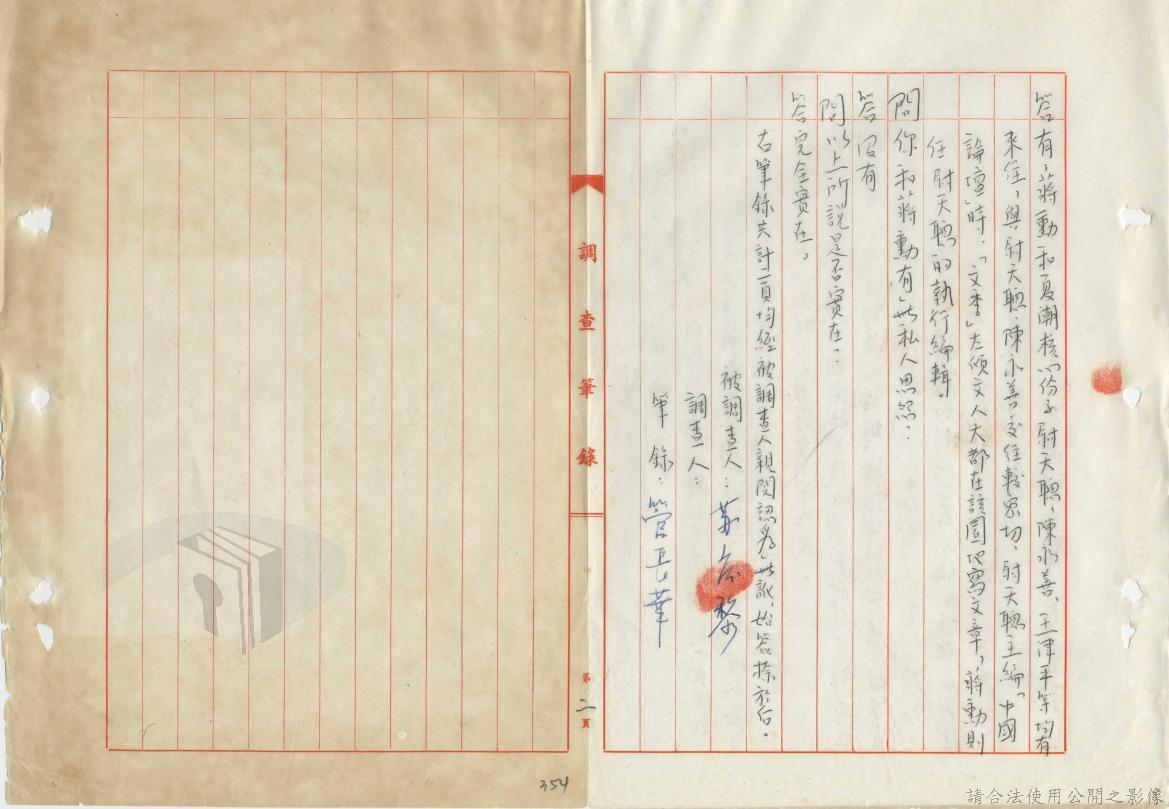 答有,蔣勳和夏潮核心份子尉天聰、陳永善、王津平等均有
來往,與尉天聰、陳永善交往較密切,尉天聰主編「中國
論壇」時,「文季」左傾文人大都在該園地寫文章,蔣勳則
任尉天聰的執行編輯。
問你和蔣勳有無私人恩怨?
答沒有
問以上所說是否實在?
答完全實在。
右筆錄共計二頁均經被調查人親閱認為無訛,始簽捺於后。
被調查人:
調查人:
筆錄:管長華
調查筆錄
第二頁
354
請合法使用公開之影像